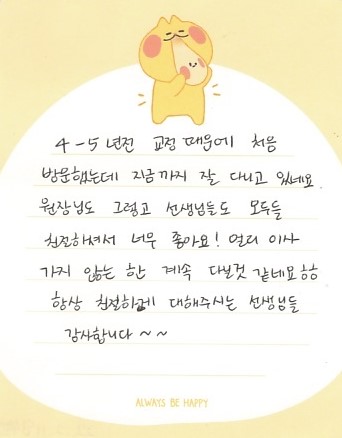 4-5년전 교정 때문에 처음
방문했는데 지금까지 잘 다니고 있네요
원장님도 그렇고 선생님들도 모두들
친절하셔서 너무 좋아요! 멀리 이사
가지 않는 한 계속 다닐것 같네요ㅎㅎ
항상 친절하게 대해주시는 선생님들
감사합니다 ~ ~
ALWAYS BE HAPPY